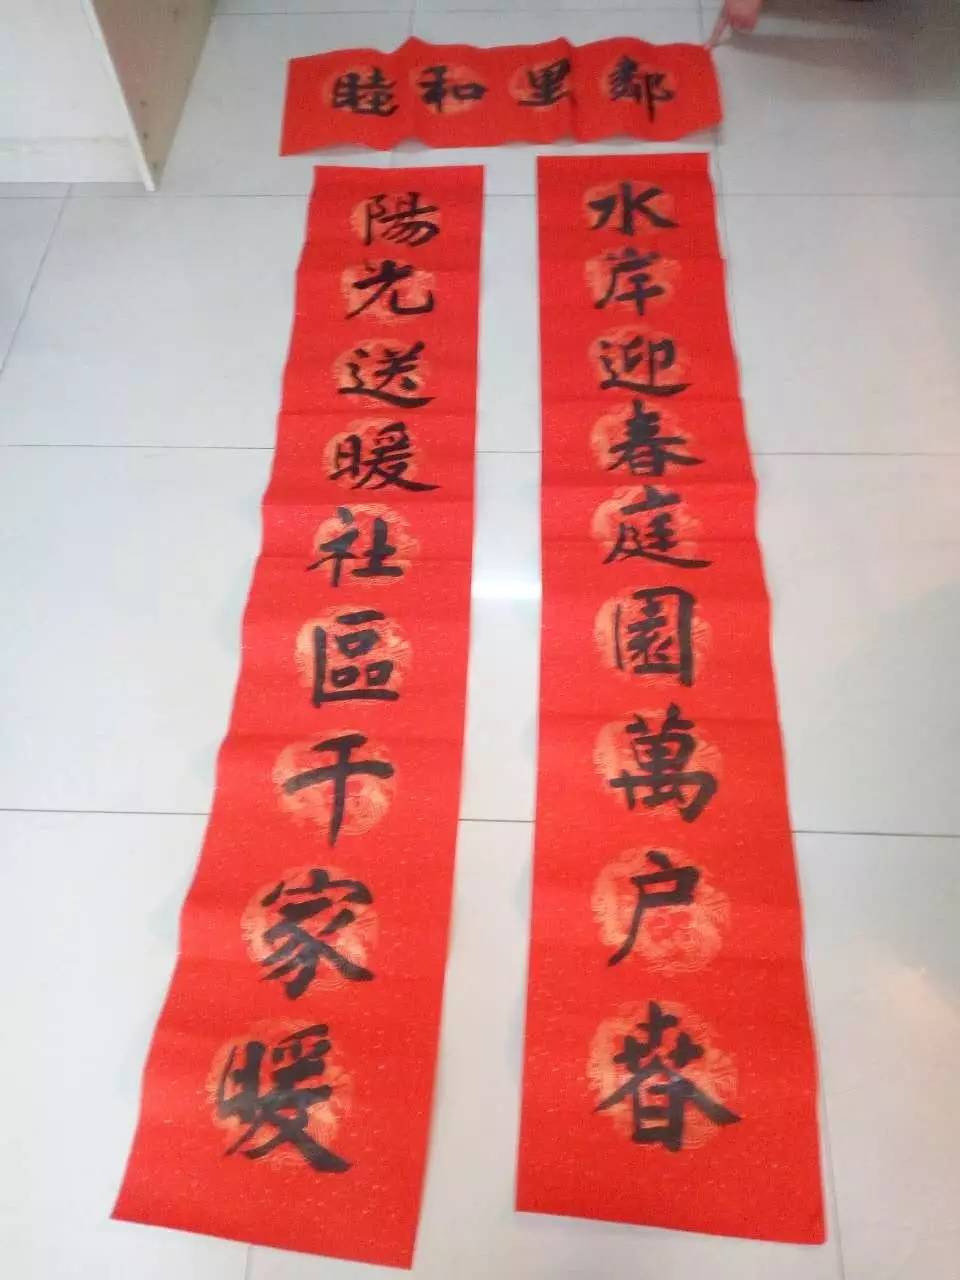 鄰里和睦
水岸迎春庭園萬户春
陽光送暖社區千家暖